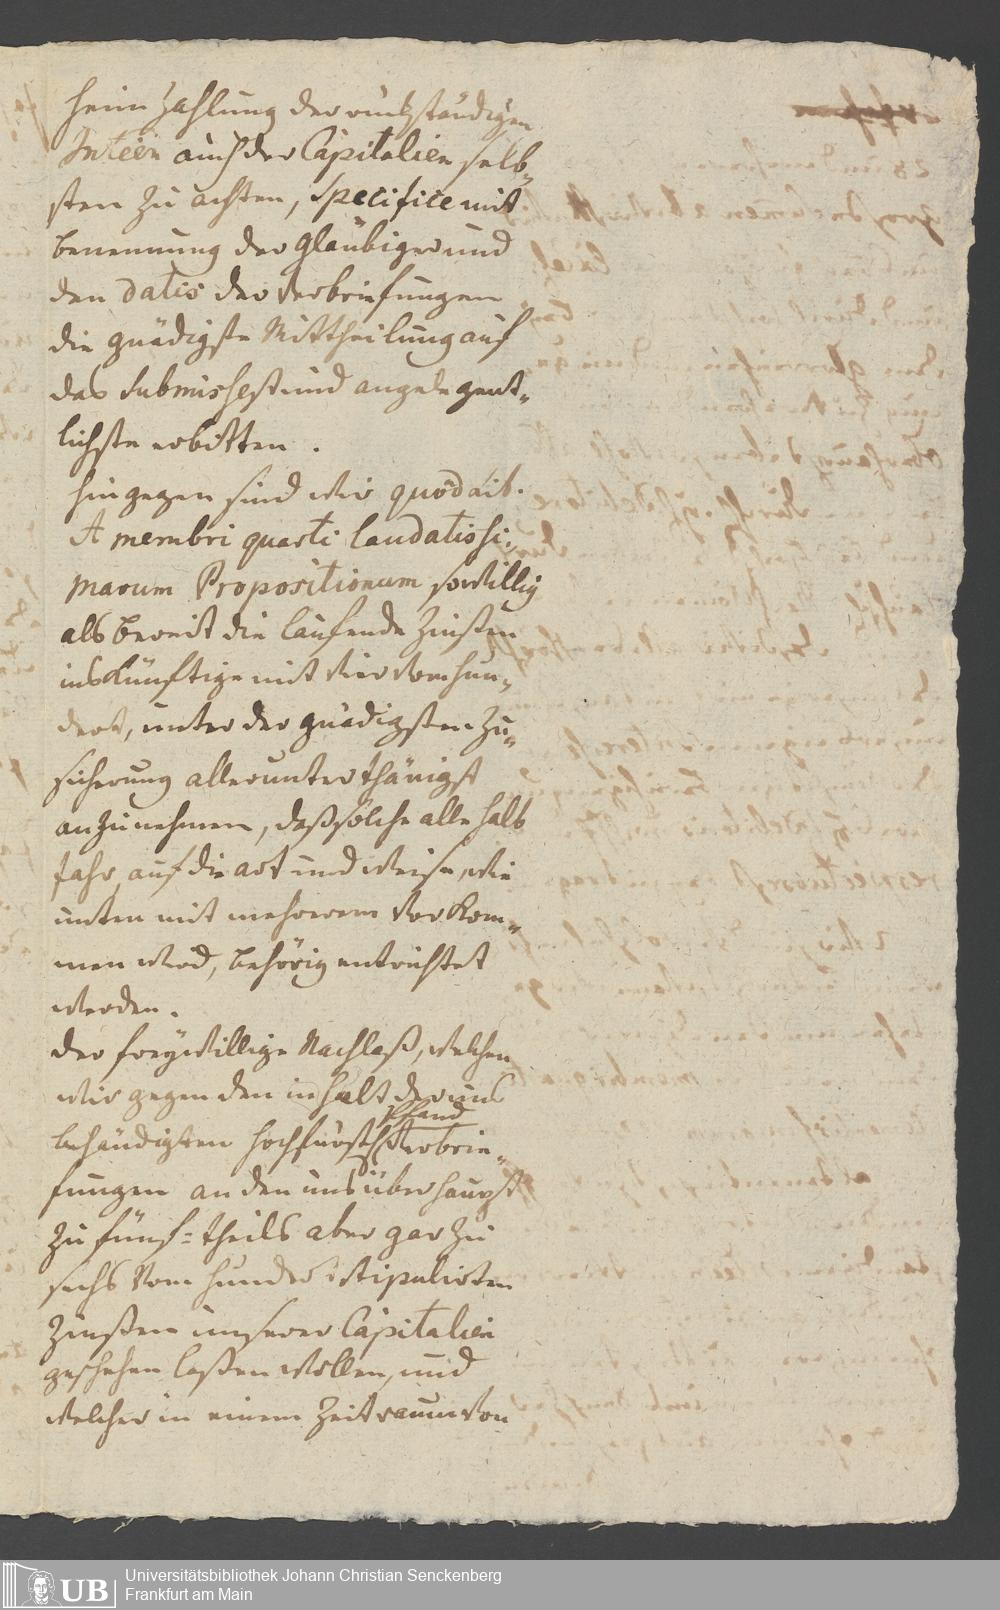 heim Zahlung der rückständigen
Inteen auch der Capitalien selb„
sten zu achten, specifice mit
benennung der Gläubiger und
den datis der Verbriefungen
die gnädigste Mittheilung auf
das submissest und angelegent„
lichste erbitten.
hingegen sind wir quod ait.
A membri quarti laudatissi„
marum Propositionum so willig
als bereit die laufende Zinßen
ins künftige mit vier vom hun„
dert, unter der gnädigsten Zu„
sicherung allerunterthänigst
anzunehmen, daß solche alle halb
Jahr, auf die art und weise, wie
unten mit mehrerem vorkom„
men wird, behörig entrichtet
werden.
der freywillige Nachlaß, welchen
wir gegen den inhalt der uns
Pfand
behändigten hochfürstl Verbrie„
fungen an den uns überhaupt
zu fünf= theils aber gar zu
sechs vom hundert stipulirten
Zinßen unserer Capitalien
geschehen laßen wollen, und
welcher in einem Zeitraum von
UB Universitätsbibliothek Johann Christian Senckenberg
Frankfurt am Main